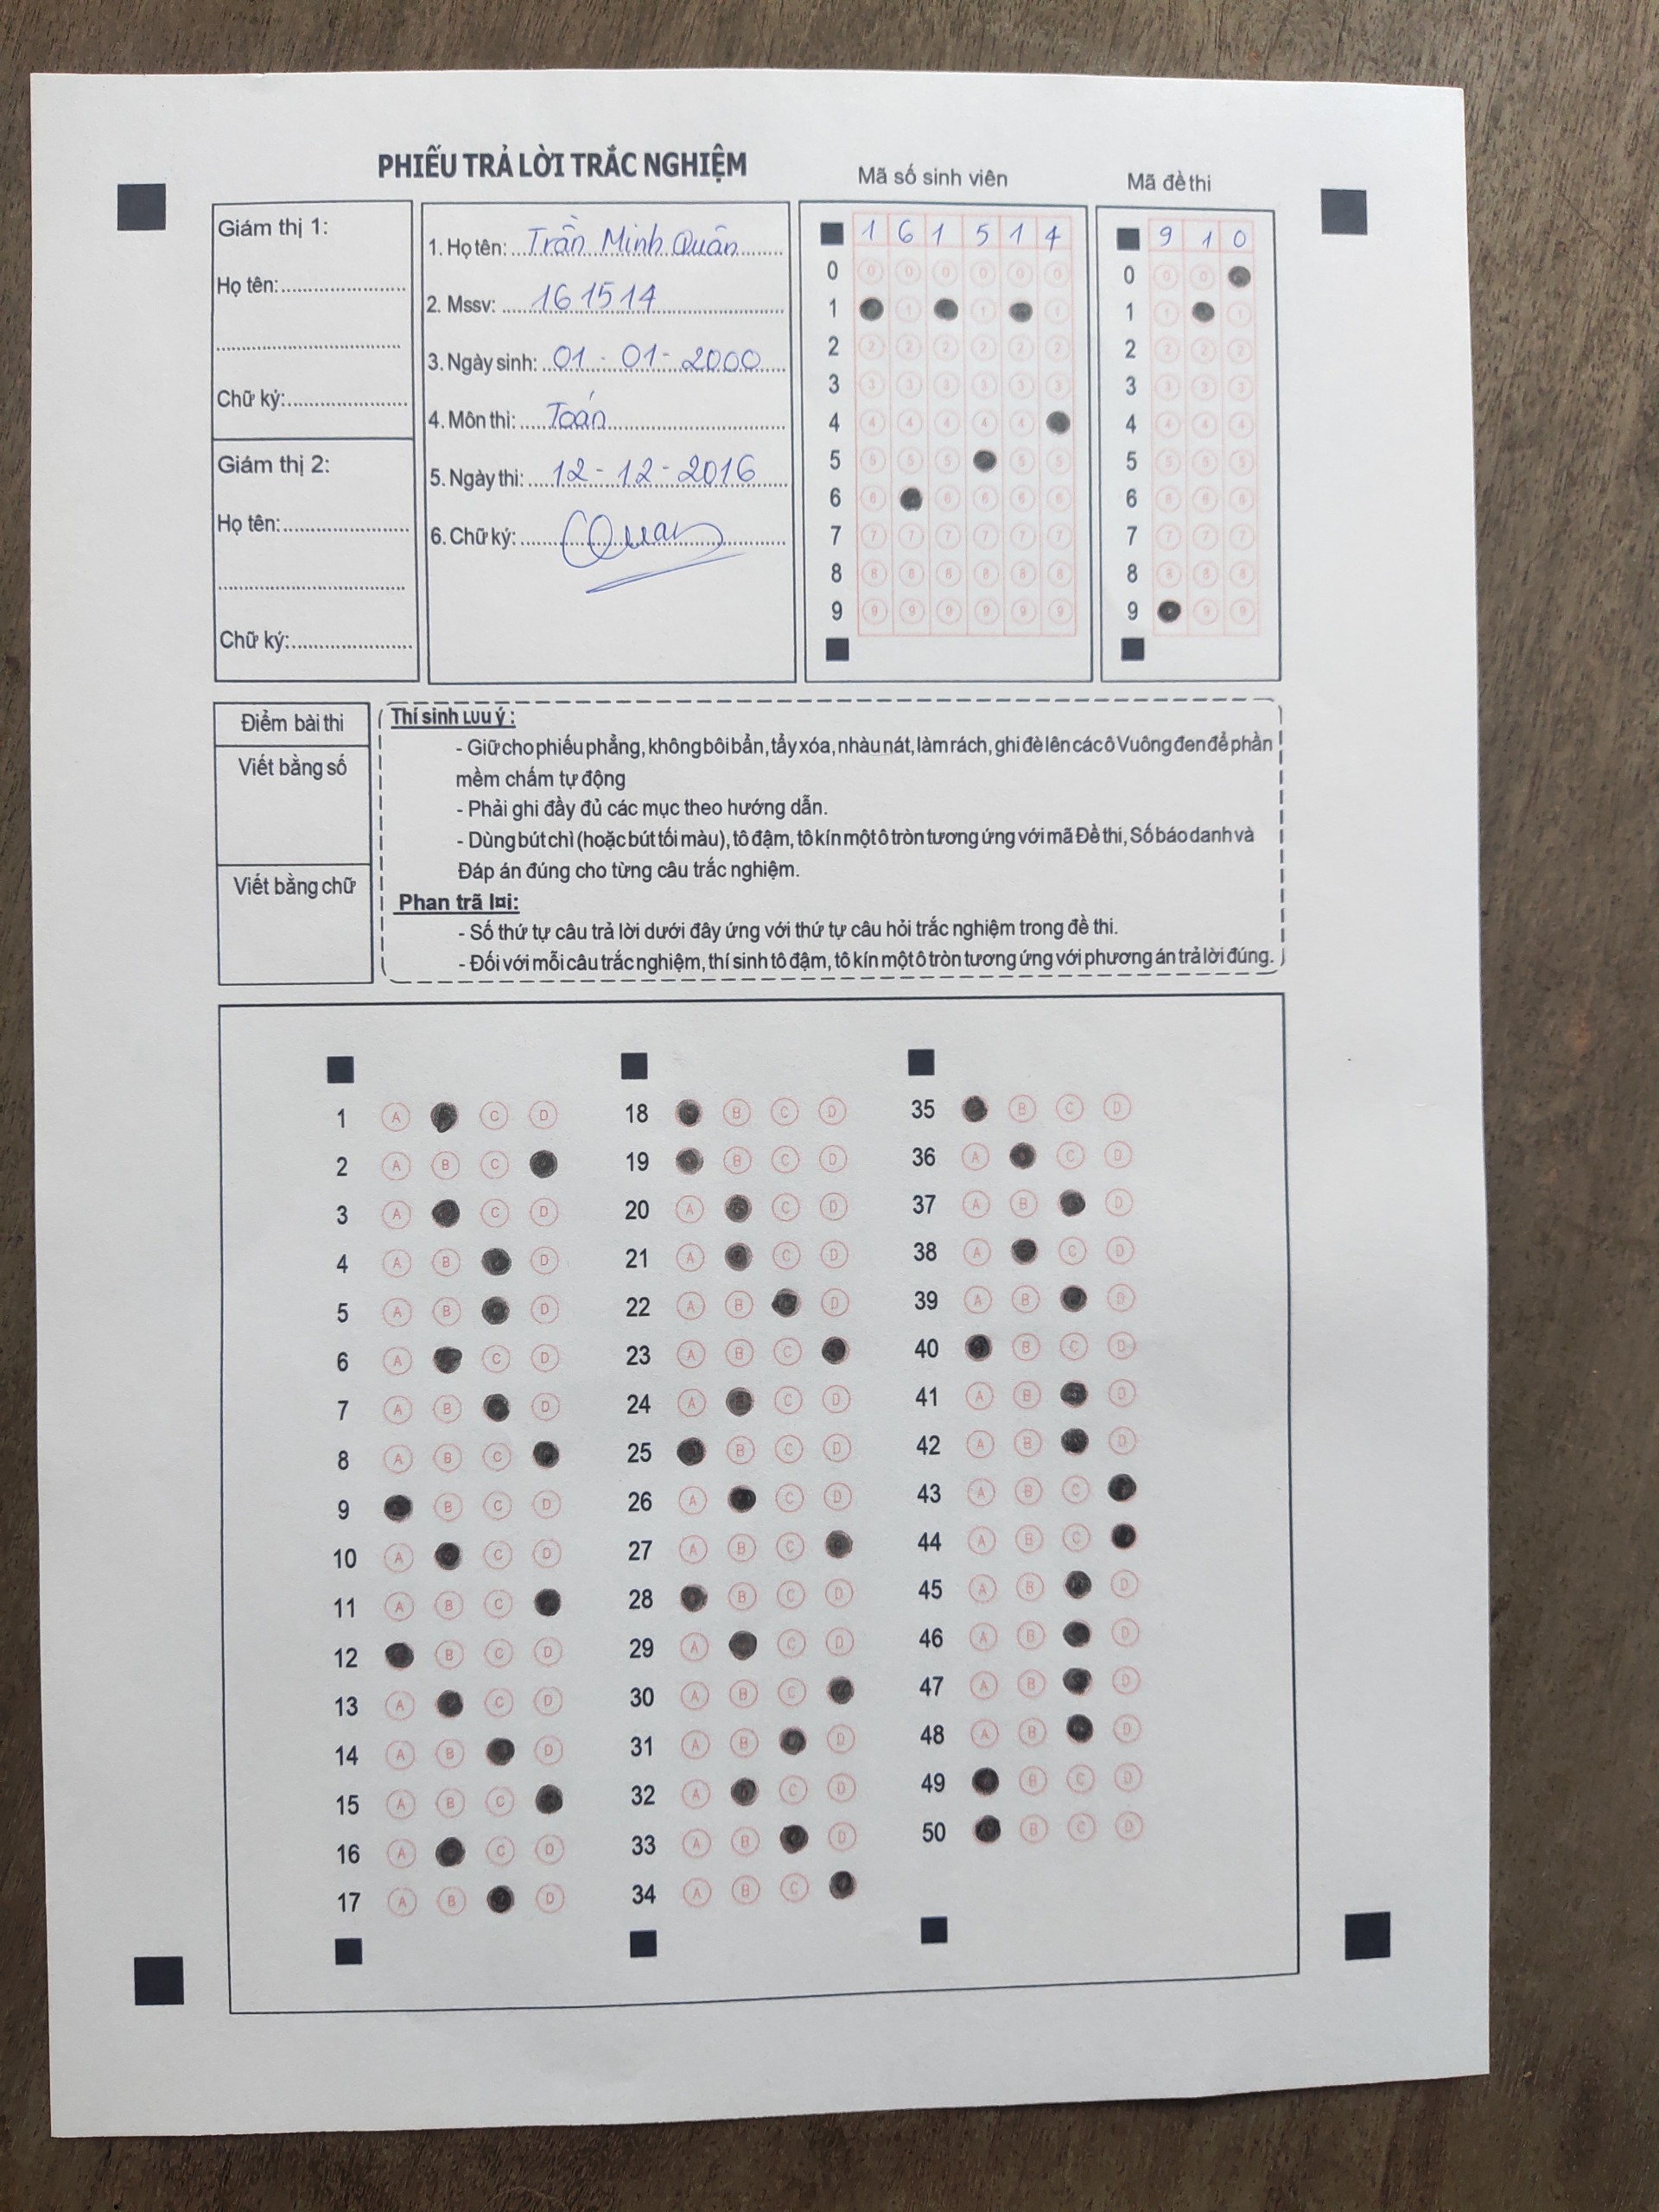 PHIẾU TRẢ LỜI TRẮC NGHIỆM
Mã số sinh viên
Mã đề thi
Giám thị 1:
Họ tên:
Chữ ký:
Giám thị 2:
Họ tên:
Chữ ký:
1. Họ tên: Trần Minh Quân
2. Mssv: 161514
3. Ngày sinh: 01 - 01 - 2000
4. Môn thi: Toán
5. Ngày thi: 12 - 12 - 2016
6. Chữ ký: Quan
1 6 1 5 1 4
0 0 0 0 0 0 0
1 1 1 1
2 2 2 2 2 2 2
3 3 3 3 3 3 3
4 4 4 4 4 4
5 5 5 5 5 5
6 6 6 6 6 6
7 7 7 7 7 7 7
8 8 8 8 8 8 8
9 9 9 9 9 9 9
9 1 0
0 0 0
1 1 1
2 2 2 2
3 3 3 3
4 4 4 4
5 5 5 5
6 6 6 6
7 7 7 7
8 8 8 8
9 9 9
Điểm bài thi
Viết bằng số
Viết bằng chữ
Thí sinh Lưu ý :
- Giữ cho phiếu phẳng, không bôi bẩn, tẩy xóa, nhàu nát, làm rách, ghi đè lên các ô Vuông đen để phần
mềm chấm tự động
- Phải ghi đầy đủ các mục theo hướng dẫn.
- Dùng bút chì (hoặc bút tối màu), tô đậm, tô kín một ô tròn tương ứng với mã Đề thi, Số báo danh và
Đáp án đúng cho từng câu trắc nghiệm.
Phan trã l¤i:
- Số thứ tự câu trả lời dưới đây ứng với thứ tự câu hỏi trắc nghiệm trong đề thi.
- Đối với mỗi câu trắc nghiệm, thí sinh tô đậm, tô kín một ô tròn tương ứng với phương án trả lời đúng.
1 A C D
2 A B C
3 A C D
4 A B D
5 A B D
6 A C D
7 A B D
8 A B C
9 B C D
10 A C D
11 A B C
12 B C D
13 A C D
14 A B D
15 A B C
16 A C D
17 A B D
18 B C D
19 B C D
20 A C D
21 A C D
22 A B D
23 A B C
24 A C D
25 B C D
26 A C D
27 A B C
28 B C D
29 A C D
30 A B C
31 A B D
32 A C D
33 A B D
34 A B C
35 B C D
36 A C D
37 A B D
38 A C D
39 A B D
40 B C D
41 A B D
42 A B D
43 A B C
44 A B C
45 A B D
46 A B D
47 A B D
48 A B D
49 B C D
50 B C D